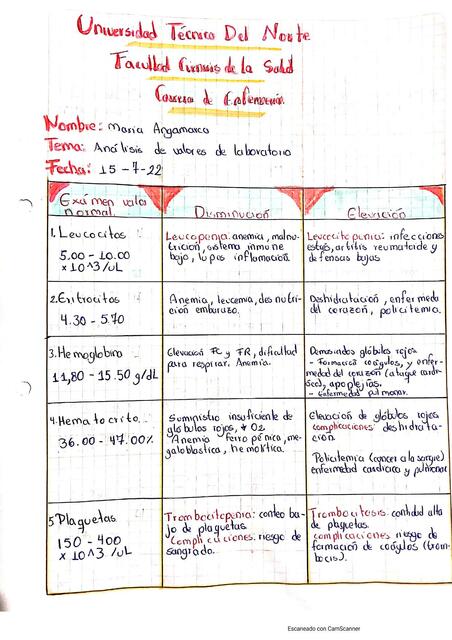 Universidad Técnica Del Norte
Facultad Ciencias de la Salud
Carrera de Enfermería
Nombre: Maria Angamarca
Tema: Análisis de valores de laboratorio
Fecha: 15-7-22
Exámen valor normal
Disminución
Elevación
1. Leucocitos
5.00 - 10.00
x 10^3/uL
Leucopenia: anemia, malnu-
trición, sistema inmune
bajo, lupus inflamación.
Leucocitopenia: infecciones
estrés, artritis reumatoide y
defensas bajas
2. Eritrocitos
4.30 - 5.70
Anemia, leucemia, desnutri-
ción embarazo.
Deshidratación, enfermeda
del corazón, policitemia.
3. Hemoglobina
11,80 - 15.50 g/dL
Elevación FC y FR, dificultad
para respirar. Anemia.
Demasiados glóbulos rojos
- Formación coágulos, y enfer-
medad del corazón (ataque cardi-
aco), apoplejías.
- Enfermedad pulmonar.
4. Hematocrito
36.00 - 47.00%
Suministro insuficiente de
glóbulos rojos, + O2
Anemia ferropénica, me-
galoblástica, hemolítica.
Elevación de glóbulos rojos
complicaciones: deshidrata-
ción
Policitemia (cancer a la sangre)
enfermedad cardiaca y pulmonar
5 Plaquetas
150 - 400
x 10^3 /uL
Trombocitopenia: conteo ba-
jo de plaquetas.
Complicaciones: riesgo de
sangrado.
Trombocitosis: cantidad alta
de plaquetas.
complicaciones riesgo de
formación de coágulos (trom-
bocis).
Escaneado con CamScanner